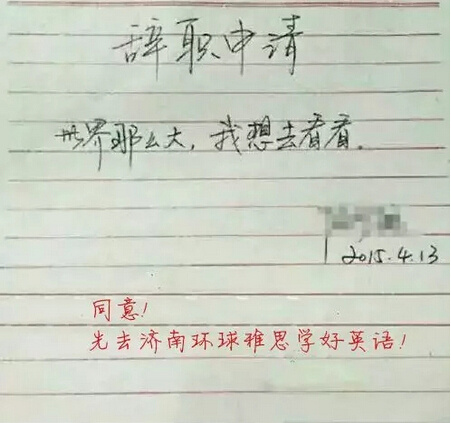 辞职申请
世界那么大，我想去看看。
2015.4.13
同意！
先去济南环球雅思学好英语！